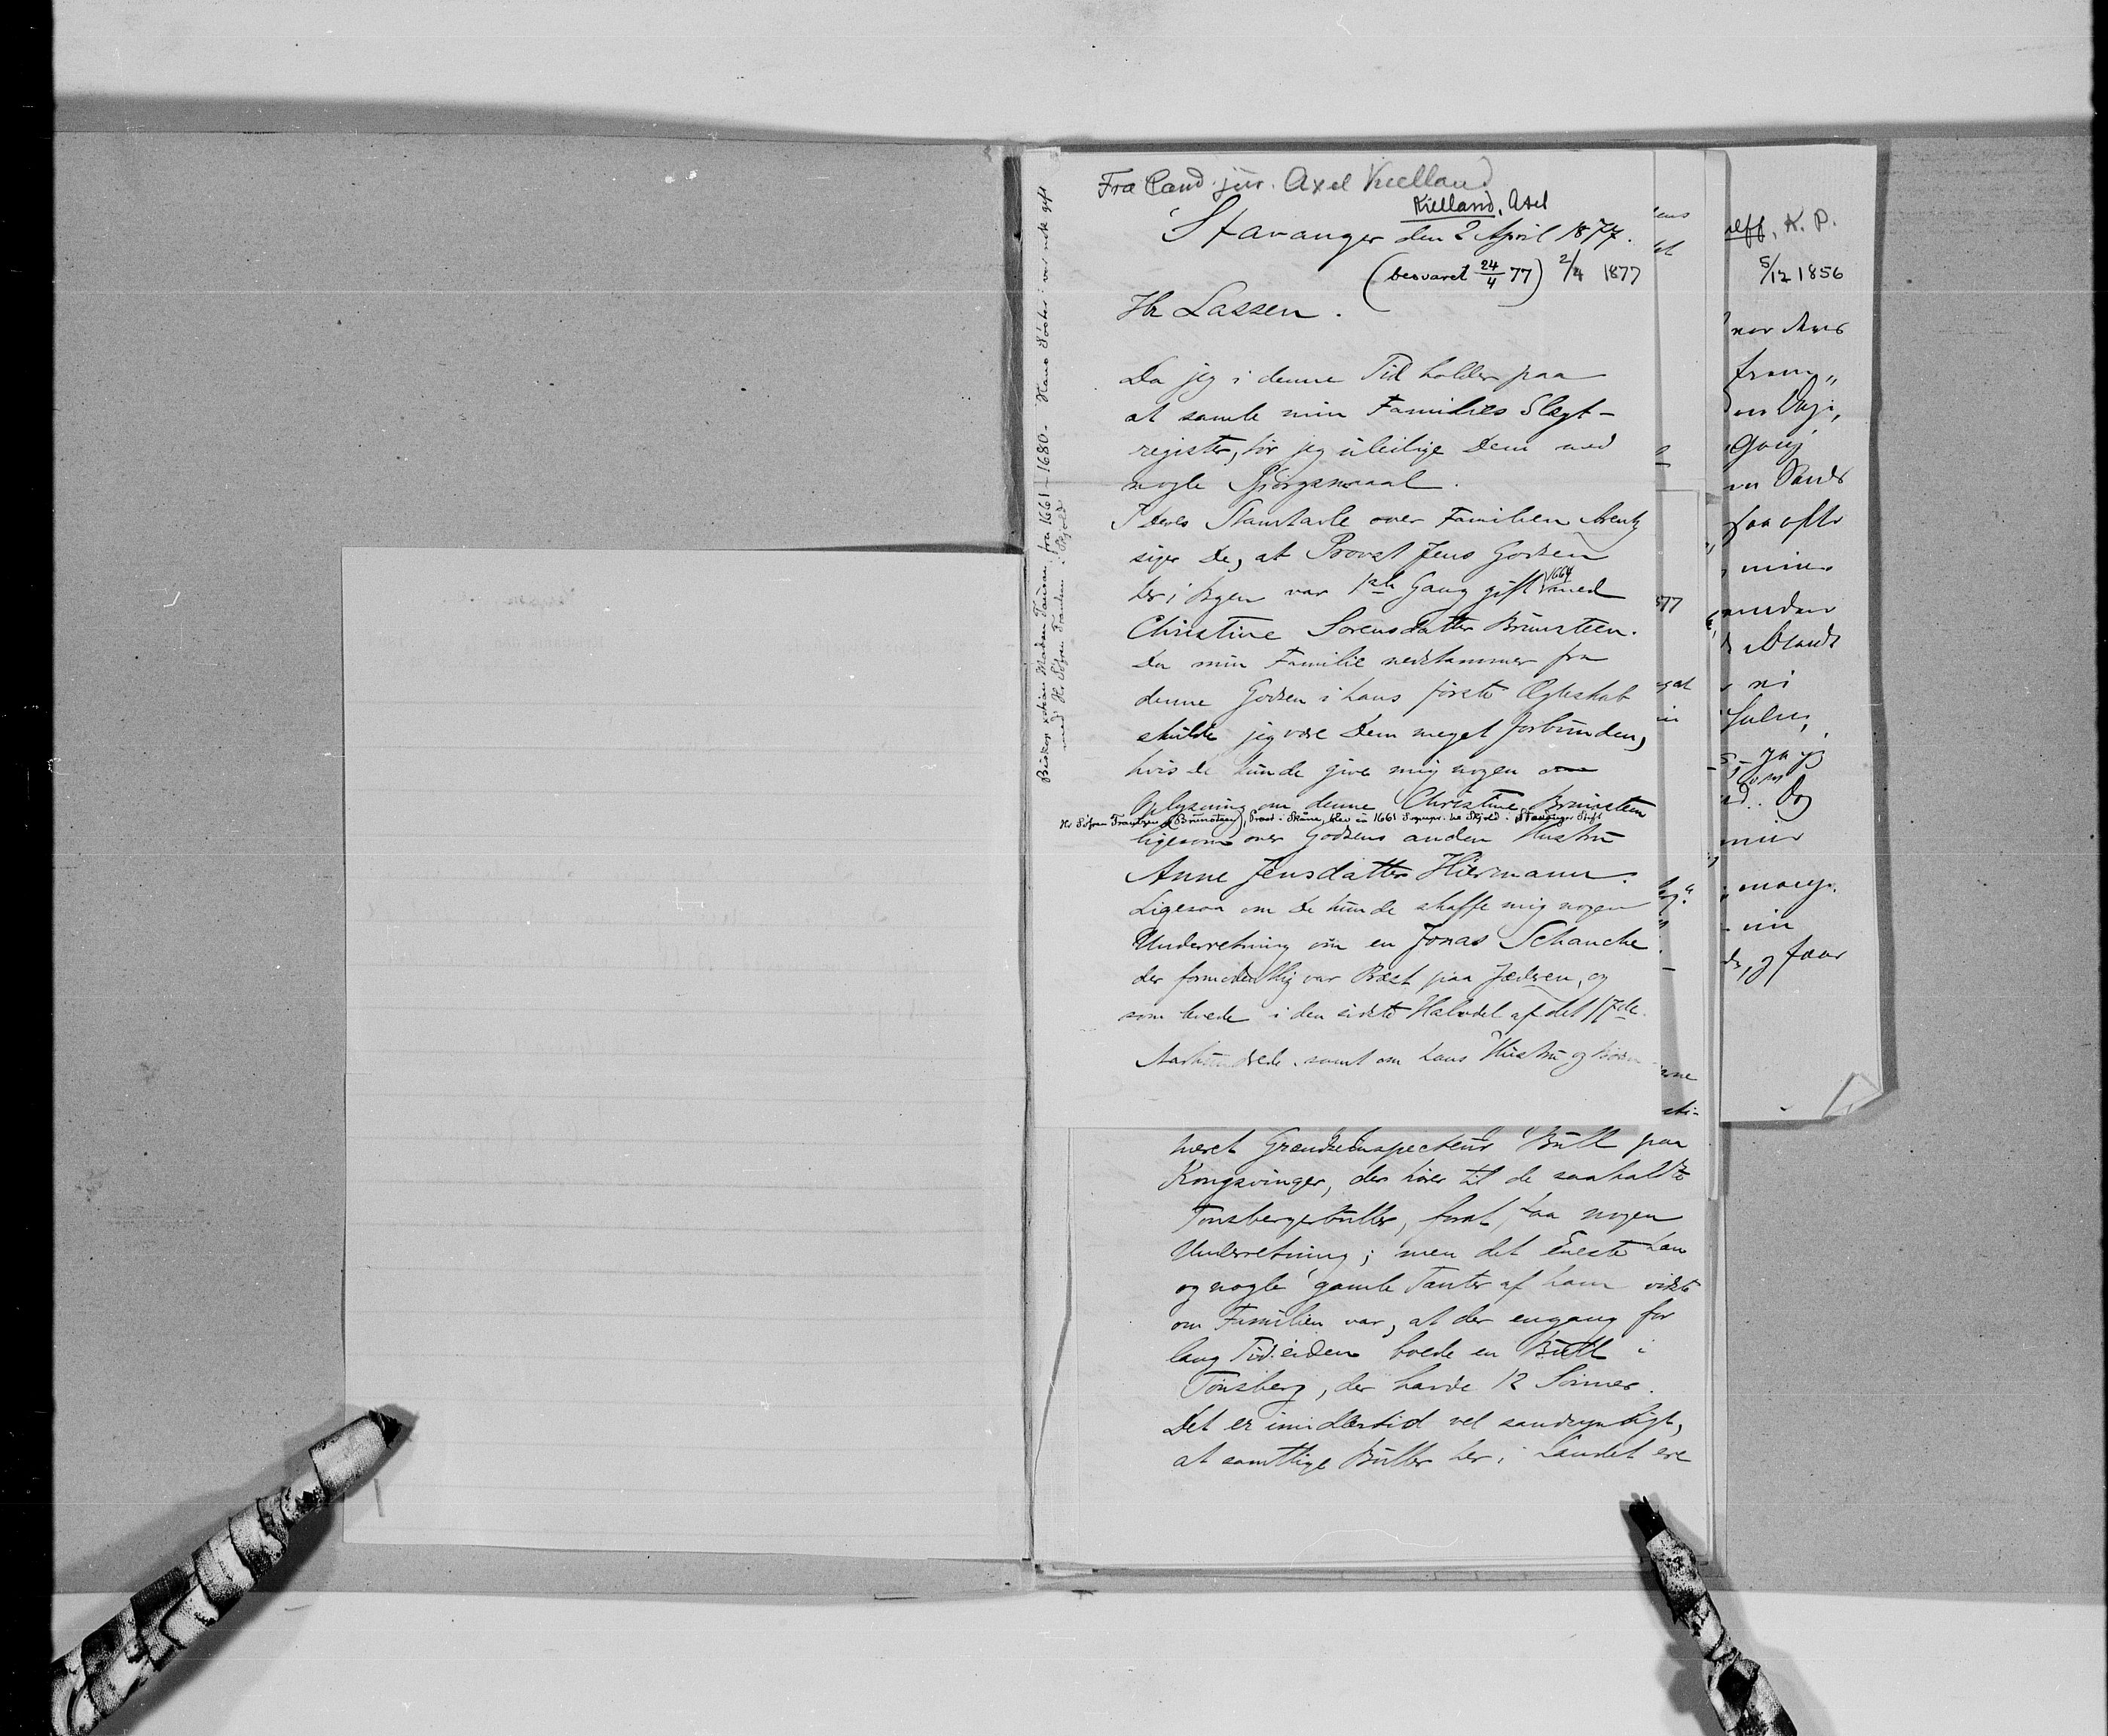 Fra Cand. jur. Axel Kielland
Kielland, Axel
Stavanger den 2 April 1877.
(besvaret 24/4 77) 2/4 1877
Hr Lassen.
Da jeg i denne Tid holder paa
at samle min Families Slægt-
register, tør jeg uleilige Dem med
nogle Spørgsmaal.
I Deres Stamtavle over Familien Arentz
siger De, at Provst Jens Godzen
her i Byen var 1ste Gang gift 1664 med
Christine Sørensdatter Brunsteen.
Da min Familie nedstammer fra
denne Godzen i hans første Ægteskab
skulde jeg være Dem meget forbunden,
hvis De kunde give mig nogen
Oplysning om denne Christine Brunsteen
Hr Søfren Frantzen (Brunsteen), Provst i Skåne, blev in 1661 Sognepr. til Skjold i Stavanger Stift
ligesom over Godzens anden Hustru
Anne Jensdatter Hiermann.
Ligesaa om De kunde skaffe mig nogen
Underretning om en Jonas Schanche
der formodentlig var Præst paa Jæderen, og
som levede i den sidste Halvdel af det 17de
Aarhundrede, samt om hans Hustru og Børn
Biskop Christian Madsen Tausan fra 1661–1680. Hans Søster: var nok gift
med Hr Søfren Frantzen i Skjold
neret Grændseinspecteur Bull paa
Kongsvinger, der hører til de saakaldte
Tønsbergerbuller, forat faa nogen
Underretning; men det Eneste han
og nogle gamle Tanter af ham vidste
om Familien var, at der engang for
lang Tid siden boede en Bull i
Tønsberg, der havde 12 Sønner.
Det er imidlertid vel sandsynligt,
at samtlige Buller her i Landet ere
K. P.
5/12 1856